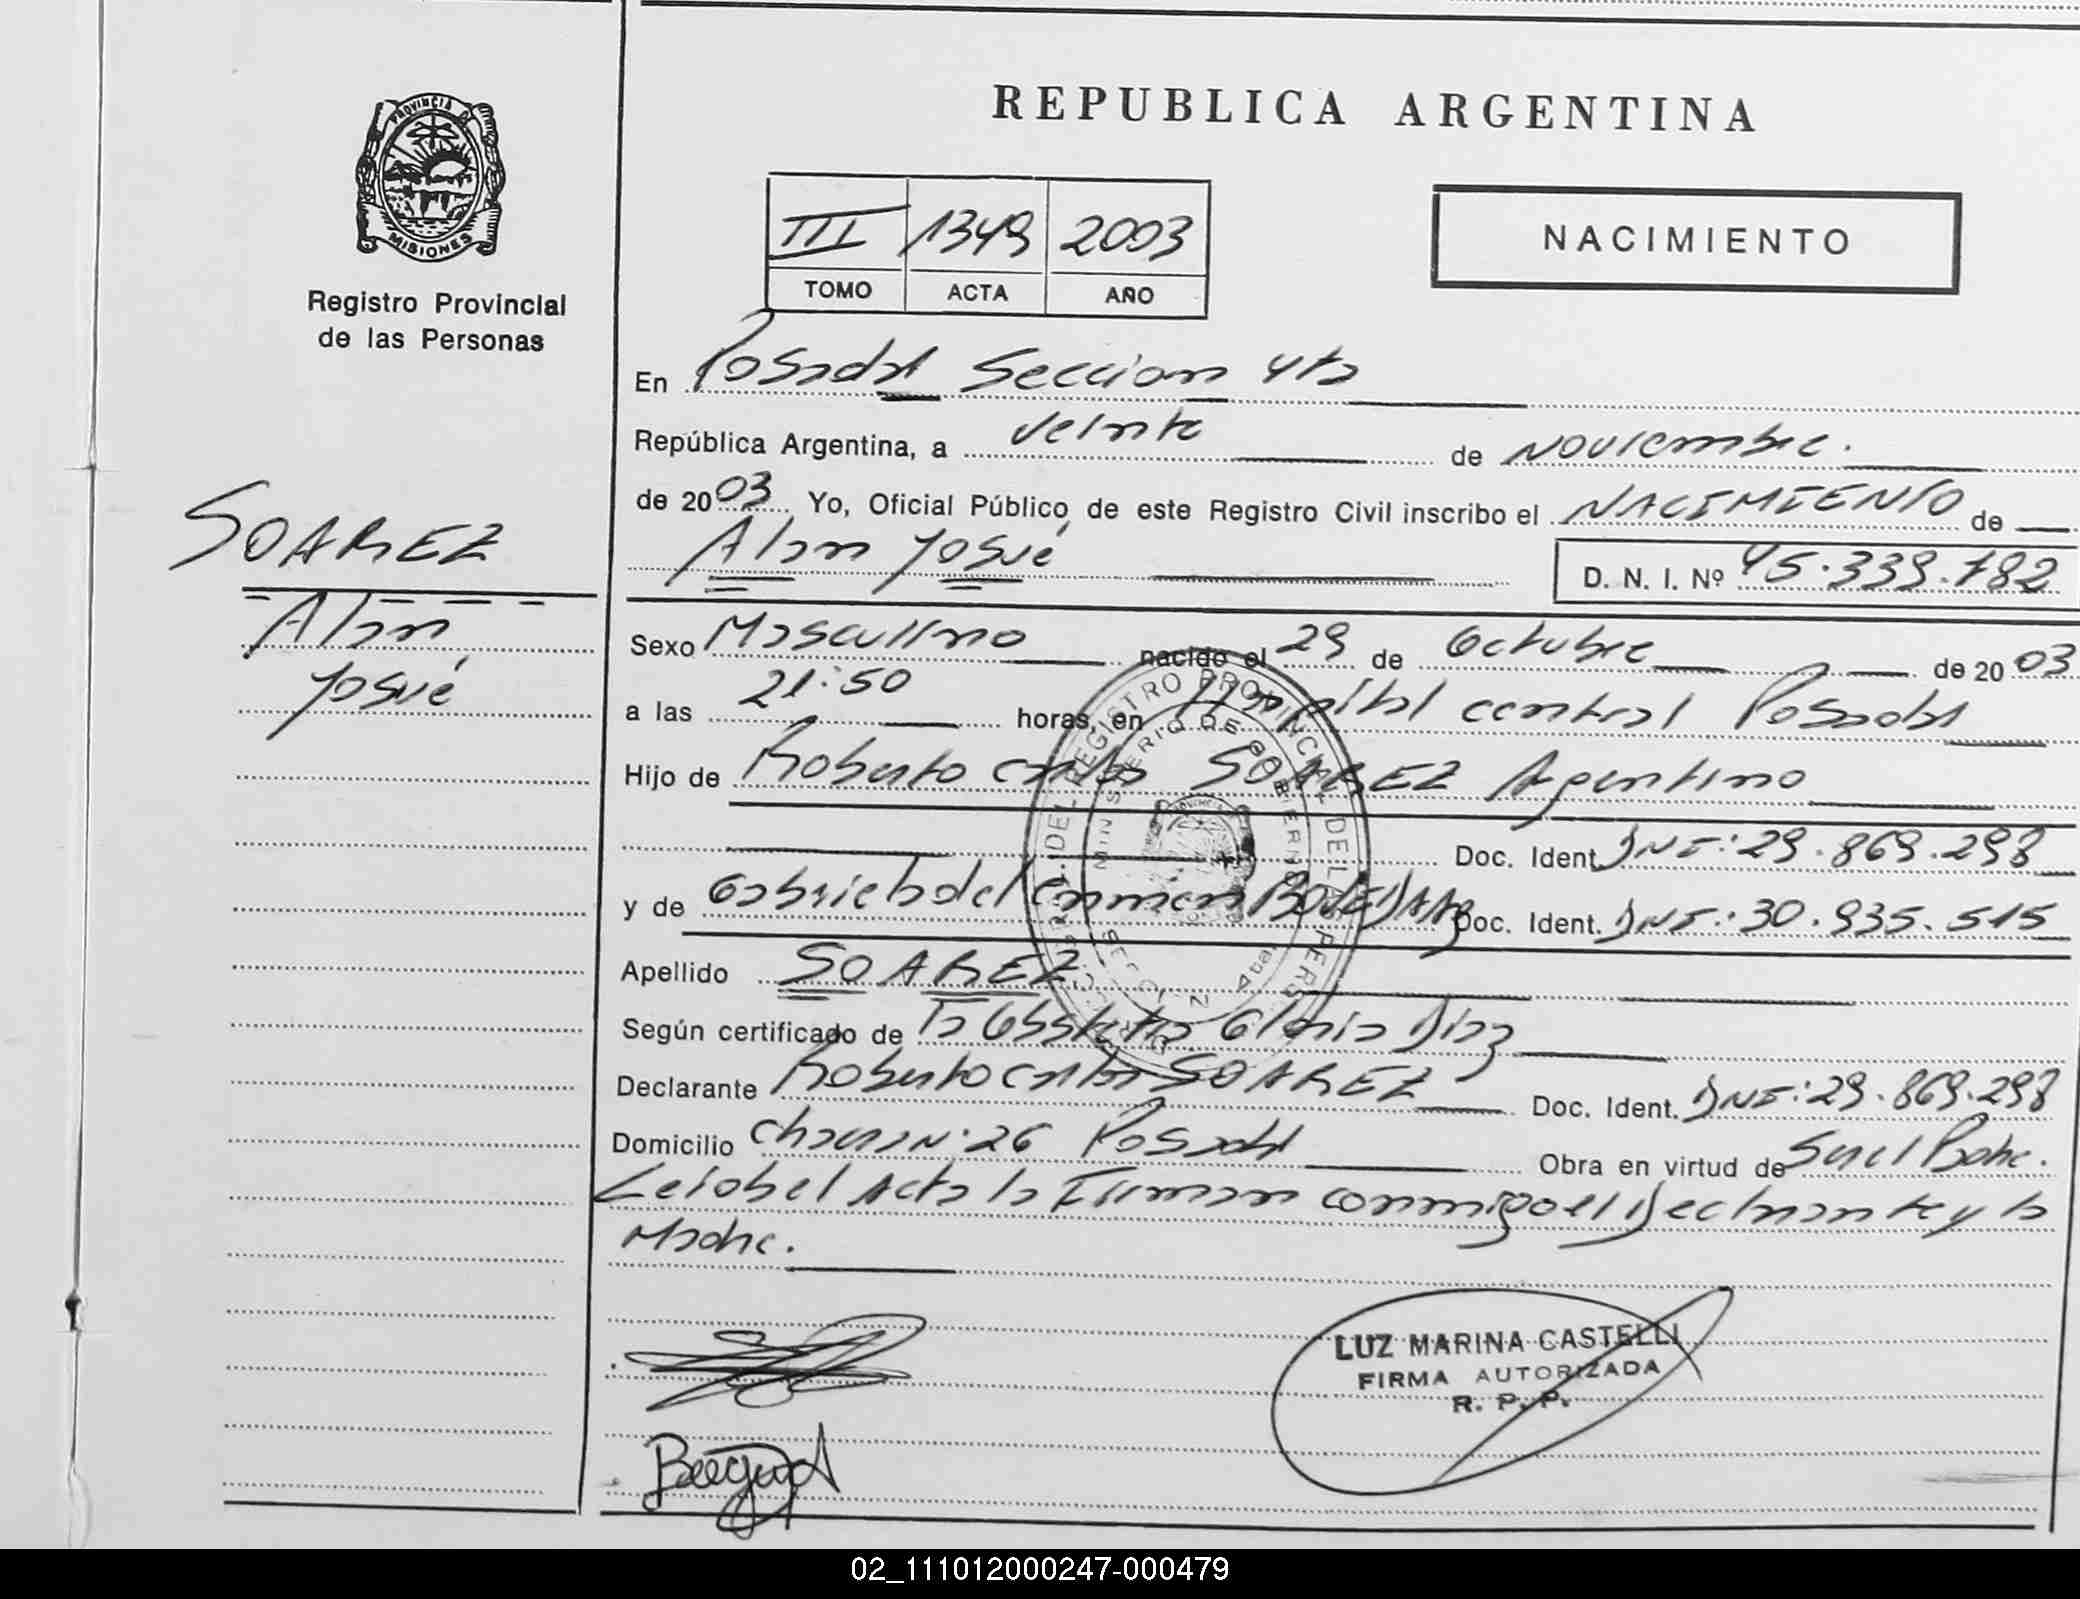 REPUBLICA ARGENTINA
PROVINCIA DE
MISIONES
Registro Provincial
de las Personas
III 1349 2003
TOMO ACTA AÑO
NACIMIENTO
En Posadas Seccion 4ta
República Argentina, a veinte de Noviembre.
de 2003 Yo, Oficial Público de este Registro Civil inscribo el NACIMIENTO de
Alan Josué
D. N. I. Nº 45.339.782
SOAREZ
Alan
Josué
Sexo Masculino nacido el 29 de Octubre de 2003
a las 21:50 horas, en Hospital central Posadas
Hijo de Roberto Carlos SOAREZ Argentino
Doc. Ident. DNI: 29.869.298
y de Gabriela del Carmen Doc. Ident. DNI: 30.935.515
Apellido SOAREZ
Según certificado de la Obstetra Gloria Diaz
Declarante Roberto Carlos SOAREZ Doc. Ident. DNI: 29.869.298
Domicilio Chacra N° 26 Posadas Obra en virtud de Ser el Padre.
Leida el Acta la Firman conmigo el Declarante y la
Madre.
REGISTRO PROVINCIAL DE LAS PERS
MINISTERIO DE GOBIERNO
SECCION 4ta.
LUZ MARINA CASTELLI
FIRMA AUTORIZADA
R. P. P.
02_111012000247-000479